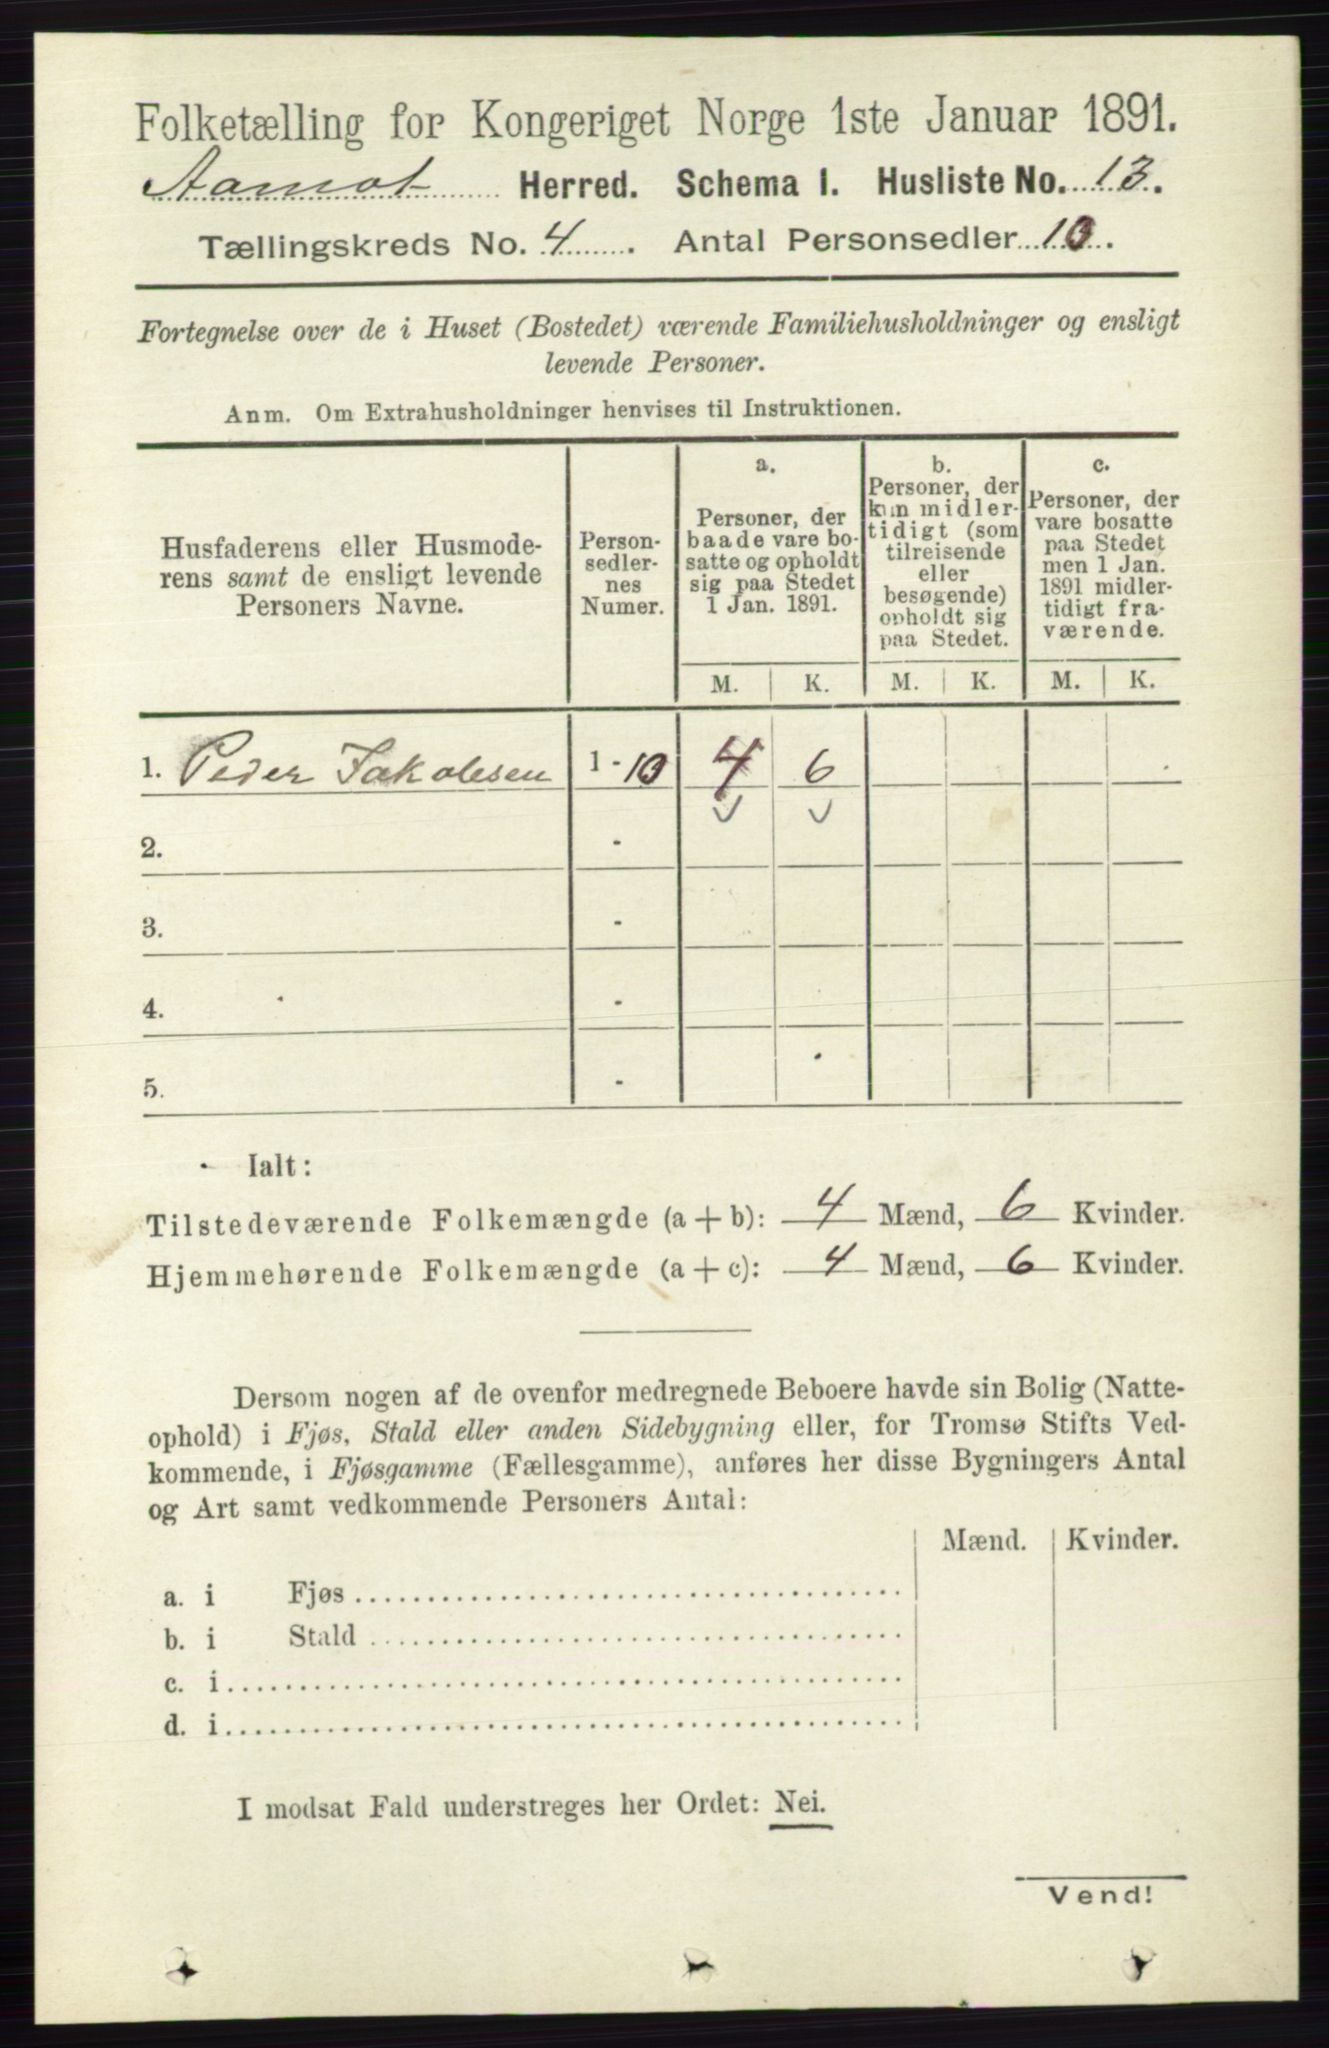 Folketælling for Kongeriget Norge 1ste Januar 1891.
Aamot Herred. Schema I. Husliste No. 13.
Tællingskreds No. 4. Antal Personsedler 10.
Fortegnelse over de i Huset (Bostedet) værende Familiehusholdninger og ensligt
levende Personer.
Anm. Om Extrahusholdninger henvises til Instruktionen.
Husfaderens eller Husmode-
rens samt de ensligt levende
Personers Navne.
Person-
sedler-
nes
Numer.
a.
Personer, der
baade vare bo-
satte og opholdt
sig paa Stedet
1 Jan. 1891.
b.
Personer, der
kun midler-
tidigt (som
tilreisende
eller
besøgende)
opholdt sig
paa Stedet.
c.
Personer, der
vare bosatte
paa Stedet
men 1 Jan.
1891 midler-
tidigt fra-
værende.
M. K. M. K. M. K.
1. Peder Jakobsen 1 - 10 4 6
2. -
3. -
4. -
5. -
Ialt:
Tilstedeværende Folkemængde (a + b): 4 Mænd, 6 Kvinder.
Hjemmehørende Folkemængde (a + c): 4 Mænd, 6 Kvinder.
Dersom nogen af de ovenfor medregnede Beboere havde sin Bolig (Natte-
ophold) i Fjøs, Stald eller anden Sidebygning eller, for Tromsø Stifts Ved-
kommende, i Fjøsgamme (Fællesgamme), anføres her disse Bygningers Antal
og Art samt vedkommende Personers Antal:
Mænd. Kvinder.
a. i Fjøs
b. i Stald
c. i
d. i
I modsat Fald understreges her Ordet: Nei.
Vend!